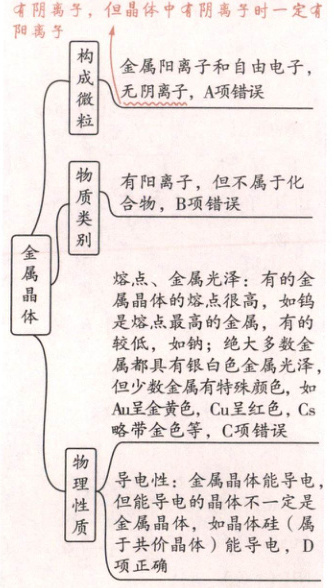 有阴离子，但晶体中有阴离子时一定有
阳离子
构成微粒
金属阳离子和自由电子，
无阴离子，A项错误
物质类别
有阳离子，但不属于化
合物，B项错误
金属晶体
熔点、金属光泽：有的金
属晶体的熔点很高，如钨
是熔点最高的金属，有的
较低，如钠；绝大多数金
属都具有银白色金属光泽，
但少数金属有特殊颜色，如
Au呈金黄色，Cu呈红色，Cs
略带金色等，C项错误
物理性质
导电性：金属晶体能导电，
但能导电的晶体不一定是
金属晶体，如晶体硅（属
于共价晶体）能导电，D
项正确